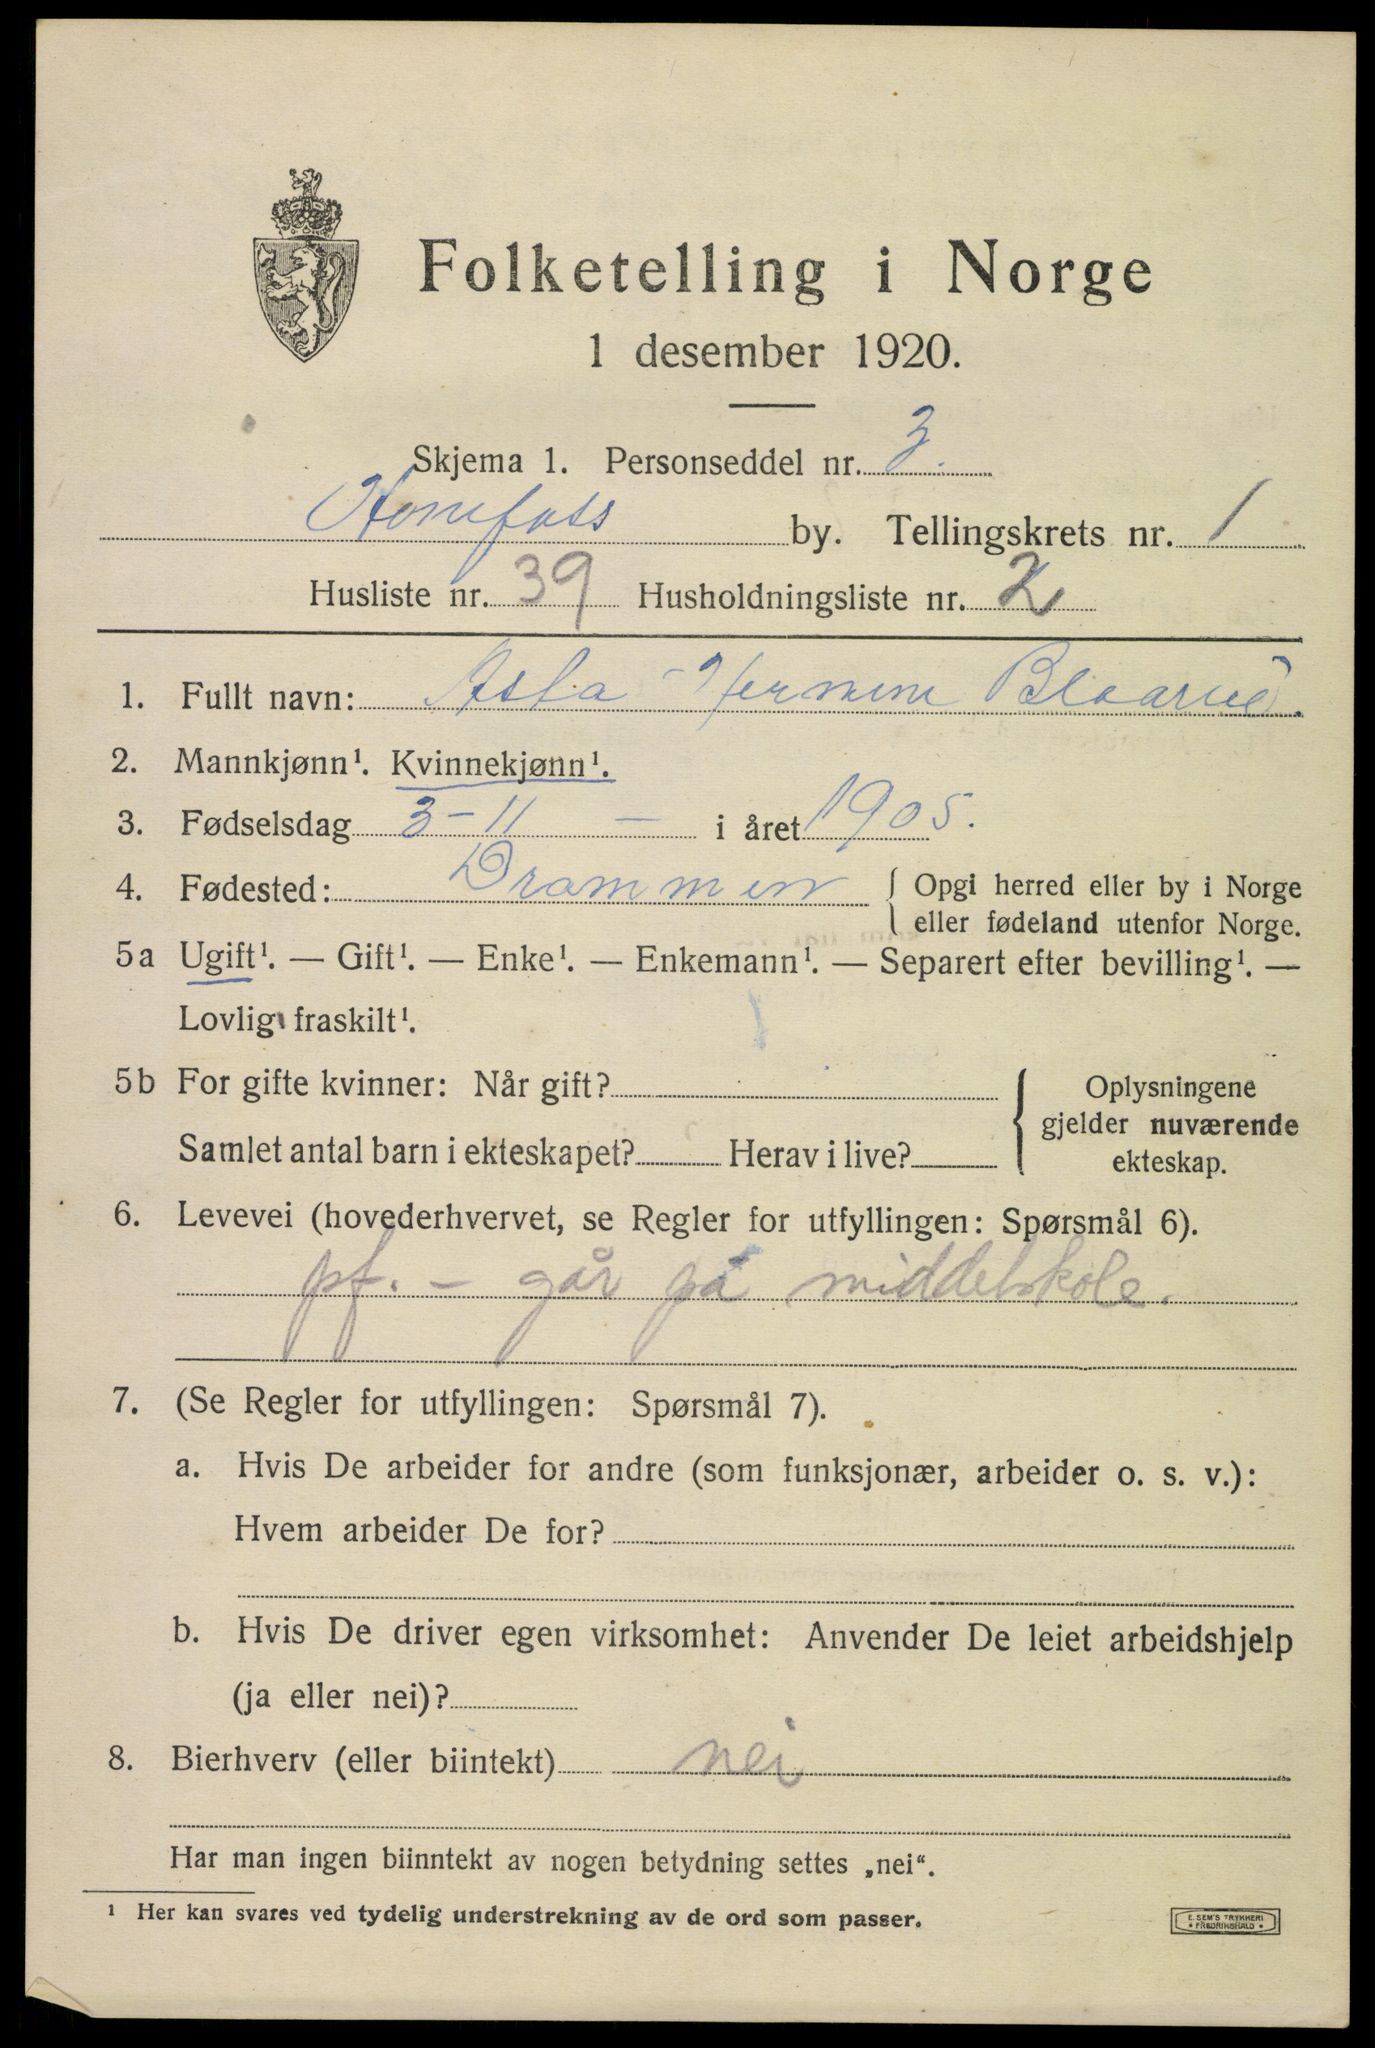 Folketelling i Norge
1 desember 1920.
Skjema 1. Personseddel nr. 3.
Hønefoss by. Tellingskrets nr. 1
Husliste nr. 39 Husholdningsliste nr. 2
1. Fullt navn: Asta Hermine
2. Mannkjønn¹. Kvinnekjønn¹.
3. Fødselsdag 3-11 — i året 1905.
4. Fødested: Drammen { Opgi herred eller by i Norge
eller fødeland utenfor Norge.
5a Ugift¹. — Gift¹. — Enke¹. — Enkemann¹. — Separert efter bevilling¹. —
Lovlig fraskilt¹.
5b For gifte kvinner: Når gift?
Samlet antal barn i ekteskapet? Herav i live?
Oplysningene
gjelder nuværende
ekteskap.
6. Levevei (hovederhvervet, se Regler for utfyllingen: Spørsmål 6).
pf. - går på middelskole.
7. (Se Regler for utfyllingen: Spørsmål 7).
a. Hvis De arbeider for andre (som funksjonær, arbeider o. s. v.):
Hvem arbeider De for?
b. Hvis De driver egen virksomhet: Anvender De leiet arbeidshjelp
(ja eller nei)?
8. Bierhverv (eller biintekt) nei
Har man ingen biinntekt av nogen betydning settes „nei“.
¹ Her kan svares ved tydelig understrekning av de ord som passer.
E. SEM'S TRYKKERI
• FREDRIKSHALD •